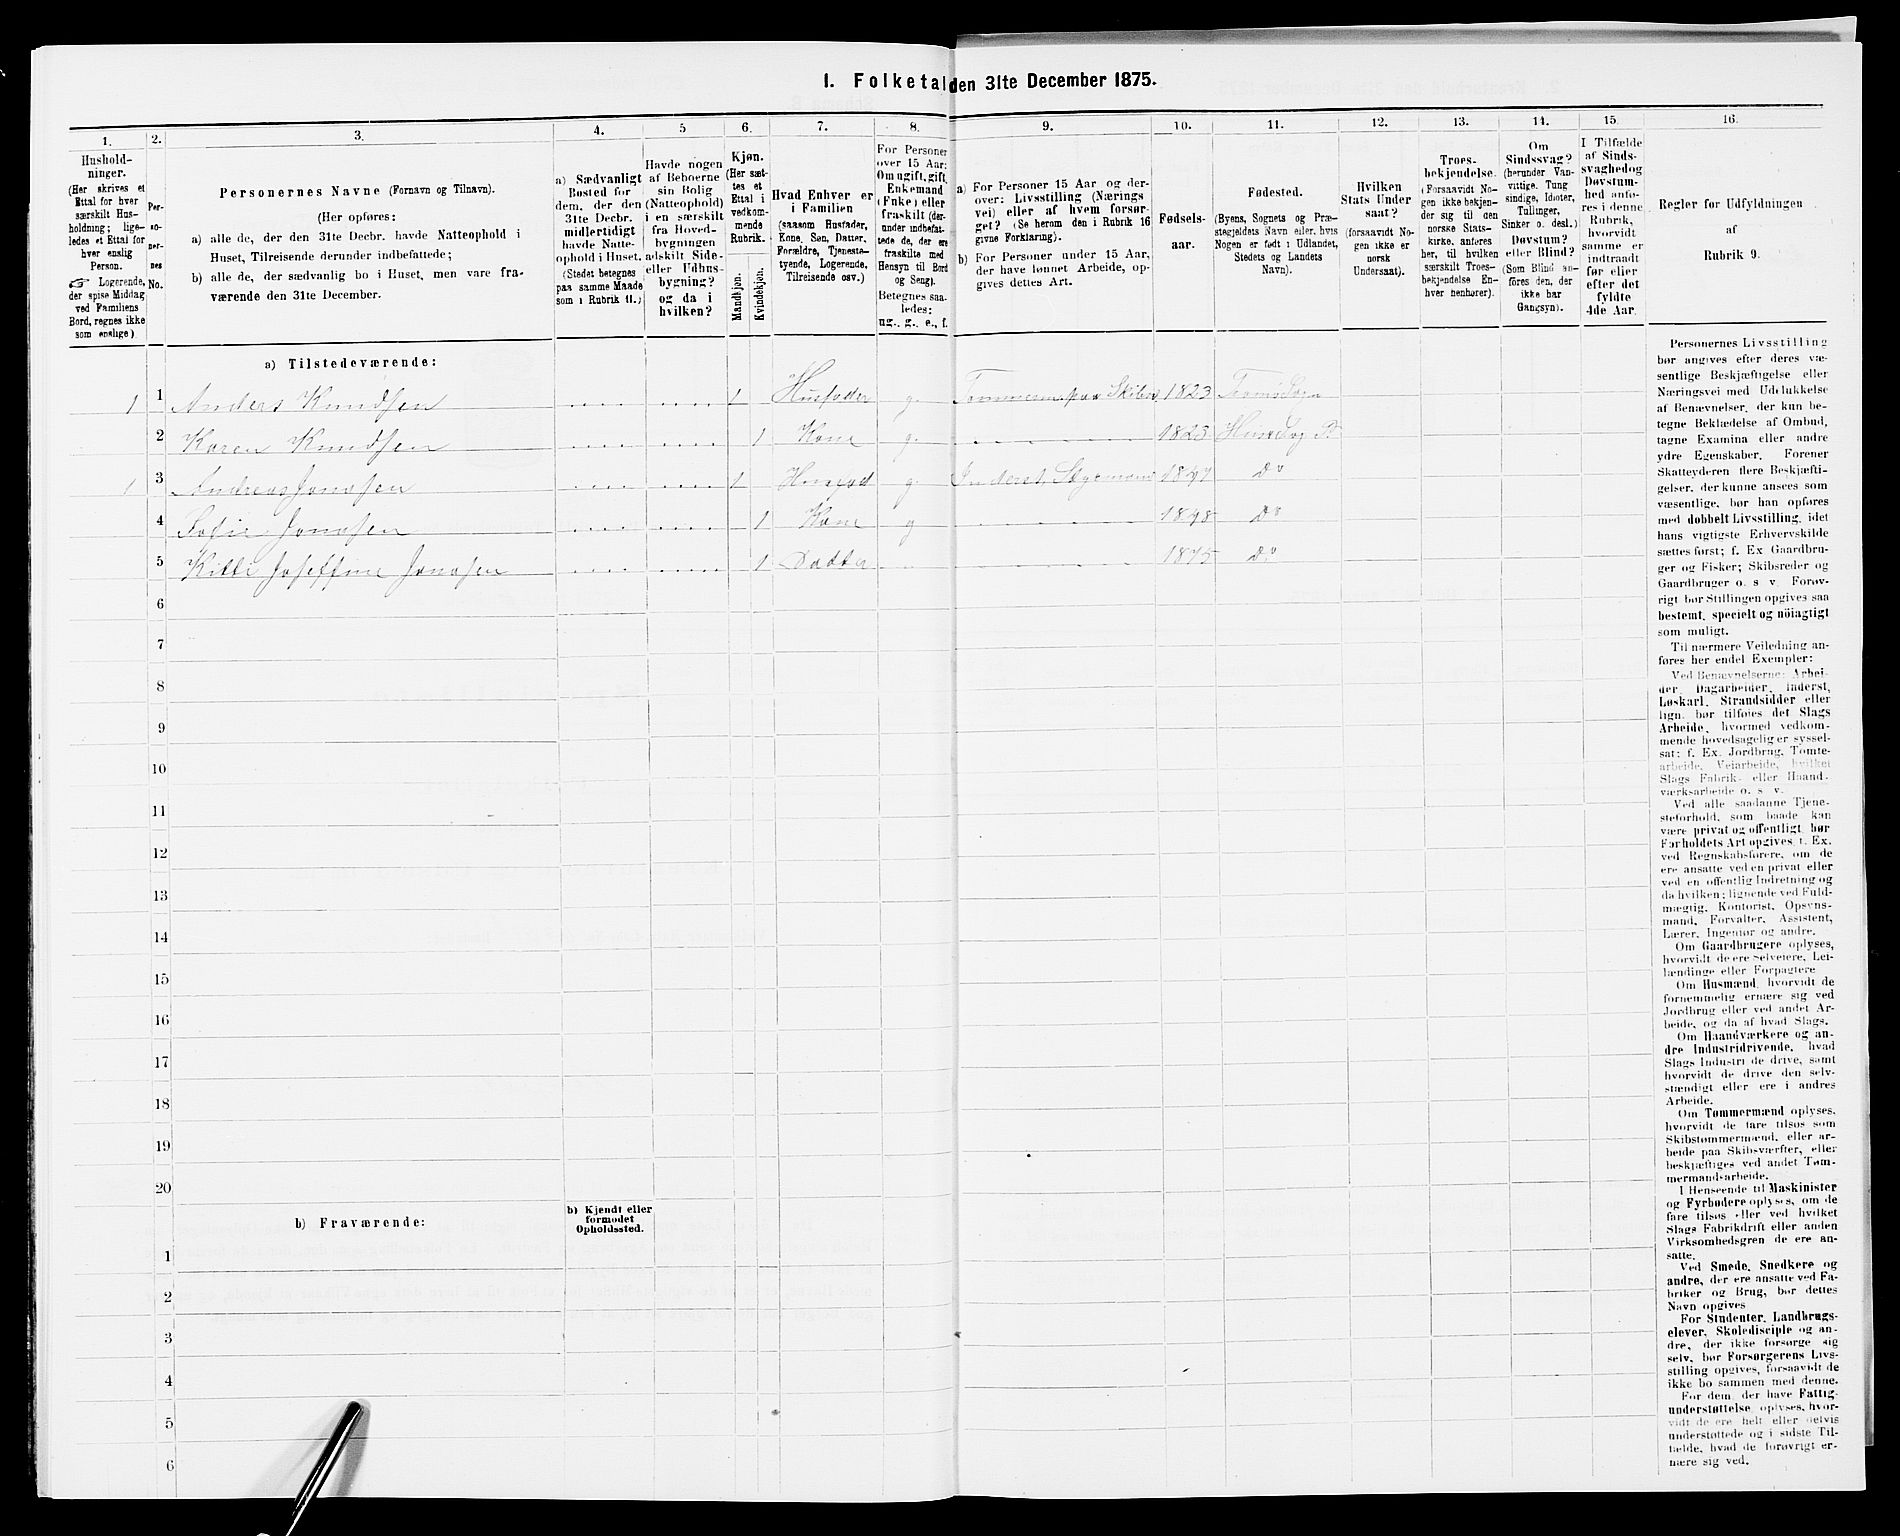 I. Folketal den 31te December 1875.
1.
2.
3.
4.
5
6.
7.
8.
9.
10.
11.
12.
13.
14.
15.
16.
Hushold-
ninger.
(Her skrives et
Ettal for hver
særskilt Hus-
holdning; lige-
ledes et Ettal for
hver enslig
Person.
☞ Logerende,
der spise Middag
ved Familiens
Bord, regnes ikke
som enslige)
Per-
so-
ner-
nes
No.
Personernes Navne (Fornavn og Tilnavn).
(Her opføres:
a) alle de, der den 31te Decbr. havde Natteophold i
Huset, Tilreisende derunder indbefattede;
b) alle de, der sædvanlig bo i Huset, men vare fra-
værende den 31te December.
a) Sædvanligt
Bosted for
dem, der den
31te Decbr.
midlertidigt
havde Natte-
ophold i Huset.
(Stedet betegnes
paa samme Maade
som i Rubrik 11.)
Havde nogen
af Beboerne
sin Bolig
(Natteophold)
i en særskilt
fra Hoved-
bygningen
adskilt Side-
eller Udhus-
bygning?
og da i
hvilken?
Kjøn.
(Her sæt-
tes et
Ettal i
vedkom-
mende
Rubrik.
Mandkjøn.
Kvindekjøn.
Hvad Enhver er
i Familien
(saasom Husfader,
Kone, Søn, Datter,
Forældre, Tjeneste-
tyende, Logerende,
Tilreisende osv.)
For Personer
over 15 Aar:
Om ugift, gift,
Enkemand
(Enke) eller
fraskilt (der-
under indbefat-
tede de, der ere
fraskilte med
Hensyn til Bord
og Seng).
Betegnes saa-
ledes:
ug., g., e., f.
a) For Personer 15 Aar og der-
over: Livsstilling (Nærings
vei) eller af hvem forsør-
get? (Se herom den i Rubrik 16
givne Forklaring).
b) For Personer under 15 Aar,
der have lønnet Arbeide, op-
gives dettes Art.
Fødsels-
aar.
Fødested.
(Byens, Sognets og Præ-
stegjeldets Navn eller, hvis
Nogen er født i Udlandet,
Stedets og Landets
Navn).
Hvilken
Stats Under
saat?
(forsaavidt No-
gen ikke er
norsk
Undersaat).
Troes-
bekjendelse.
(Forsaavidt No-
gen ikke bekjen-
der sig til den
norske Stats-
kirke, anføres
her, til hvilken
særskilt Troes-
bekjendelse En-
hver henhører).
Om
Sindssvag?
(herunder Van-
vittige, Tung
sindige, Idioter,
Tullinger,
Sinker o. desl.)
Døvstum?
eller Blind?
(Som Blind an-
føres den, der
ikke har
Gangsyn).
I Tilfælde
af Sinds-
svaghed og
Døvstum-
hed anfø-
res i denne
Rubrik,
hvorvidt
samme er
indtraadt
før eller
efter det
fyldte
4de Aar.
Regler for Udfyldningen
af
Rubrik 9.
a) Tilstedeværende:
1 1 Anders Knudsen 1 Husfader g. 1823
2 Karen Knudsen 1 Kone g. 1823
1 3 Andreas Jonassen 1 Husfad g. Inderst, Styrmand 1847 Do
4 Sofie Jonassen 1 Kone g 1848 Do
5 Kitti Joseffine Jonassen 1 Datter 1875 Do
6
7
8
9
10
11
12
13
14
15
16
17
18
19
20
b) Fraværende:
b) Kjendt eller
formodet
Opholdssted.
1
2
3
4
5
6
Personernes Livsstilling
bør angives efter deres væ-
sentlige Beskjæftigelse eller
Næringsvei med Udelukkelse
af Benævnelser, der kun be-
tegne Beklædelse af Ombud,
tagne Examina eller andre
ydre Egenskaber. Forener
Skatteyderen flere Beskjæfti-
gelser, der kunne ansees som
væsentlige, bør han opføres
med dobbelt Livsstilling, idet
hans vigtigste Erhvervskilde
sættes først; f. Ex Gaardbru-
ger og Fisker; Skibsreder og
Gaardbruger o. s v. Forøv-
rigt bør Stillingen opgives saa
bestemt, specielt og nöiagtigt
som muligt.
Til nærmere Veiledning an-
føres her endel Exempler:
Ved Benævnelserne: Arbei-
der, Dagarbeider, Inderst,
Løskarl, Strandsidder eller
lign. bør tilføies det Slags
Arbeide, hvormed vedkom-
mende hovedsagelig er syssel-
sat; f. Ex. Jordbrug, Tomte-
arbeide, Veiarbeide, hvilket
Slags Fabrik- eller Haand-
værksarbeide o. s v.
Ved alle saadanne Tjene-
steforhold, som baade kan
være privat og offentligt, bør
Forholdets Art opgives, f. Ex.
ved Regnskabsførere, om de
ere ansatte ved en privat eller
ved en offentlig Indretning og
da hvilken; lignende ved Fuld-
mægtig, Kontorist, Opsyns-
mand, Forvalter, Assistent,
Lærer, Ingeniør og andre.
Om Gaardbrugere oplyses,
hvorvidt de ere Selveiere, Lei-
lændinge eller Forpagtere
Om Husmænd, hvorvidt de
fornemmelig ernære sig ved
Jordbrug eller ved andet Ar-
beide, og da af hvad Slags.
Om Haandværkere og an-
dre Industridrivende, hvad
Slags Industri de drive, samt
hvorvidt de drive den selv-
stændigt eller ere i andres
Arbeide.
Om Tømmermænd oplyses,
hvorvidt de fare tilsøs som
Skibstømmermænd, eller ar-
beide paa Skibsværfter, eller
beskjæftiges ved andet Tøm-
mermandsarbeide.
I Henseende til Maskinister
og Fyrbødere oplyses, om de
fare tilsøs eller ved hvilket
Slags Fabrikdrift eller anden
Virksomhedsgren de ere an-
satte.
Ved Smede, Snedkere og
andre, der ere ansatte ved Fa-
briker og Brug, bør dettes
Navn opgives
For Studenter, Landbrugs-
elever, Skoledisciple og an-
dre, der ikke forsørge sig
selv, bør Forsørgerens Livs-
stilling opgives, forsaavidt de
ikke bo sammen med denne.
For dem, der have Fattig-
understøttelse, oplyses, hvor-
vidt de ere helt eller delvis
understøttede og i sidste Til-
fælde, hvad de forøvrigt er-
nære sig ved.